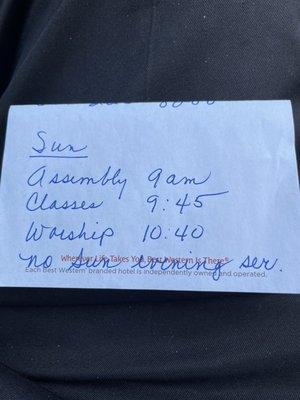 Sun
Assembly 9am
Classes 9:45
Worship 10:40
Wherever Life Takes You Best Western Is There®
no Sun evening ser.
Each Best Western® branded hotel is independently owned and operated.